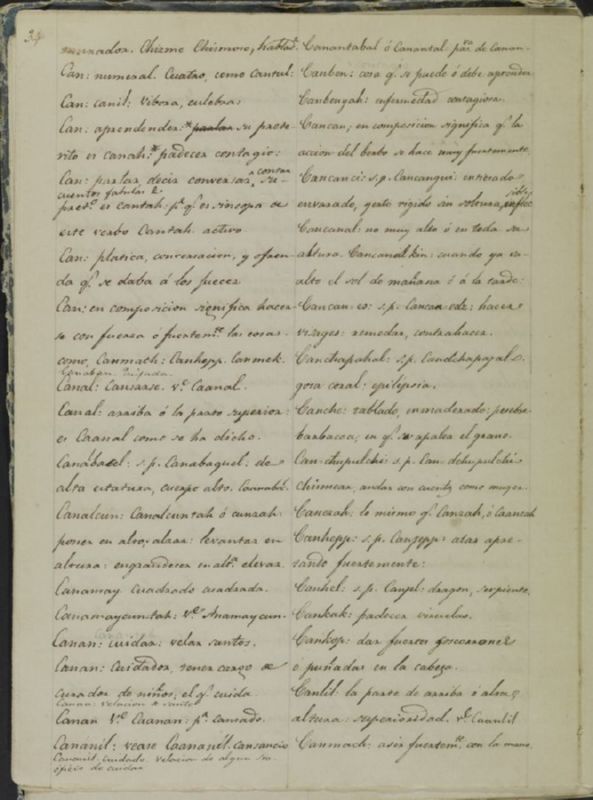 34
murmurador. Chisme Chismoso, hablad.r
Can: numeral. Cuatro, como cantul:
Can: canil: vibora, culebra:
Can: aprendender: su prete-
rito es canah: padecer contagio:
Can: parlar decir conversar, contar
cuentos fabulas &
pret.o es cantah: p.r q.e es sincopa de
este verbo Cantah. activo
Can: platica, conversacion, y ofren-
da q.e se daba á los jueces
Can: en composicion significa hacer-
se con fuerza ó fuertem.te las cosas.
como, Canmach: Canhepp. Canmek.
Canal: Cansarse. v.e Caanal.
Canal: arriba ó la parte superior:
es Caanal como se ha dicho.
Canábael: s.p. Canabaquel: de
alta estatura, cuerpo alto.
Canalcun: Canalcuntah ó cunzah:
poner en alto; alzar: levantar en
altura: engrandecer en alt.o elevar.
Canamay cuadrado cuadrada.
Canamaycuntah: V.e Amamaycun.
Canan: cuidar: velar santos.
Canan: Cuidador, tener cargo de
curador de niños, el q.e cuida
Canan: velacion de santo
Canan V.e Caanan: p.r cansado.
Cananil: vease Caananil. cansancio
Cananil: cuidado. velacion de algun sto.
oficio de cuidar
Canantabal ó Canantal pas.va de Canan.
Canben: cosa q.e se puede ó debe aprender
Canbenyah: enfermedad contagiosa.
Cancan; en composicion significa q.e la
accion del verbo se hace muy fuertemente.
Cancanci: s.p. Cancanqui: entesado
envarado, yerto rigido sin soltura, inflec
sible
Cancanal: no muy alto ó en toda su
altura. Cancanal kin: cuando ya va
alto el sol de mañana ó á la tarde:
Cancan-es: s.p. Cancan edz: hacer
visages: remedar, contrahacer.
Canchapahal: s.p. Candchapajal
gota coral: epilepsia.
Canche: tablado, enmaderado: pesebre
barbacoa; en q.e se apalea el grano.
Can-chupulchi: s.p. Can-dchupulchi
chismear, andar con cuentos como muger.
Canezah: lo mismo q.e Canzah, ó Caanzah
Canhepp: s.p. Canjepp: atar apre-
tando fuertemente:
Canhel: s.p. Canjel: dragon, serpiente.
Cankak: padecer viruelas.
Cankop: dar fuertes pescozones
ó puñadas en la cabeza.
Canlil: la parte de arriba ó alta
altura: superioridad. v.e Caanlil
Canmach: asir fuertem.te con la mano.